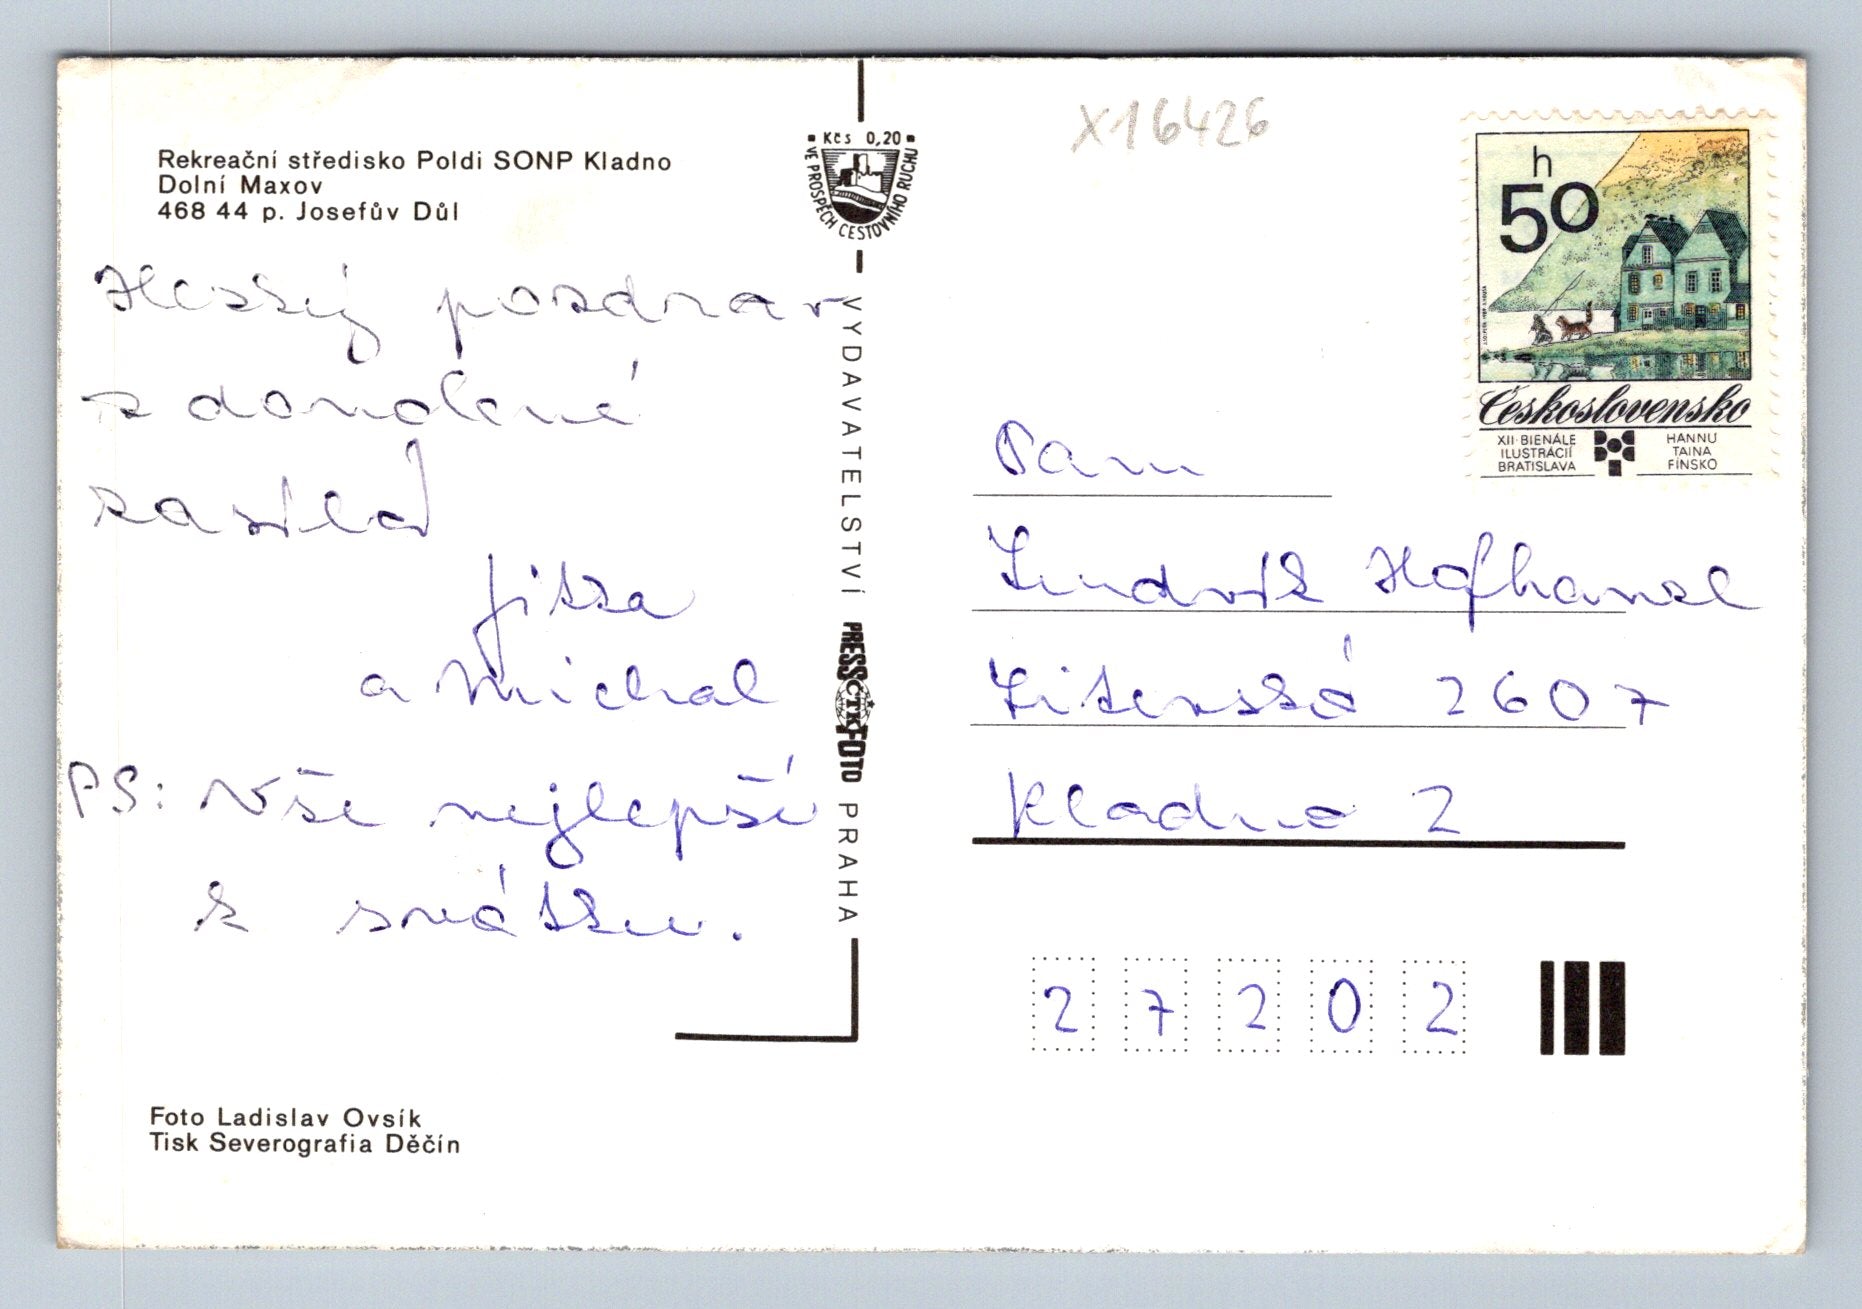 Rekreační středisko Poldi SONP Kladno
Dolní Maxov
468 44 p. Josefův Důl
Hezký pozdrav
z dovolené
zasílá
Jitka
a Michal
PS: Vše nejlepší
k svátku.
Foto Ladislav Ovsík
Tisk Severografia Děčín
Kčs 0,20
VE PROSPĚCH CESTOVNÍHO RUCHU
VYDAVATELSTVÍ PRESSFOTO PRAHA
ČTK
X16426
50 h
Československo
XII. BIENÁLE
ILUSTRÁCIÍ
BRATISLAVA
HANNU
TAINA
FÍNSKO
Pan
Ludvík Hofhanzl
Litevská 2607
Kladno 2
27202